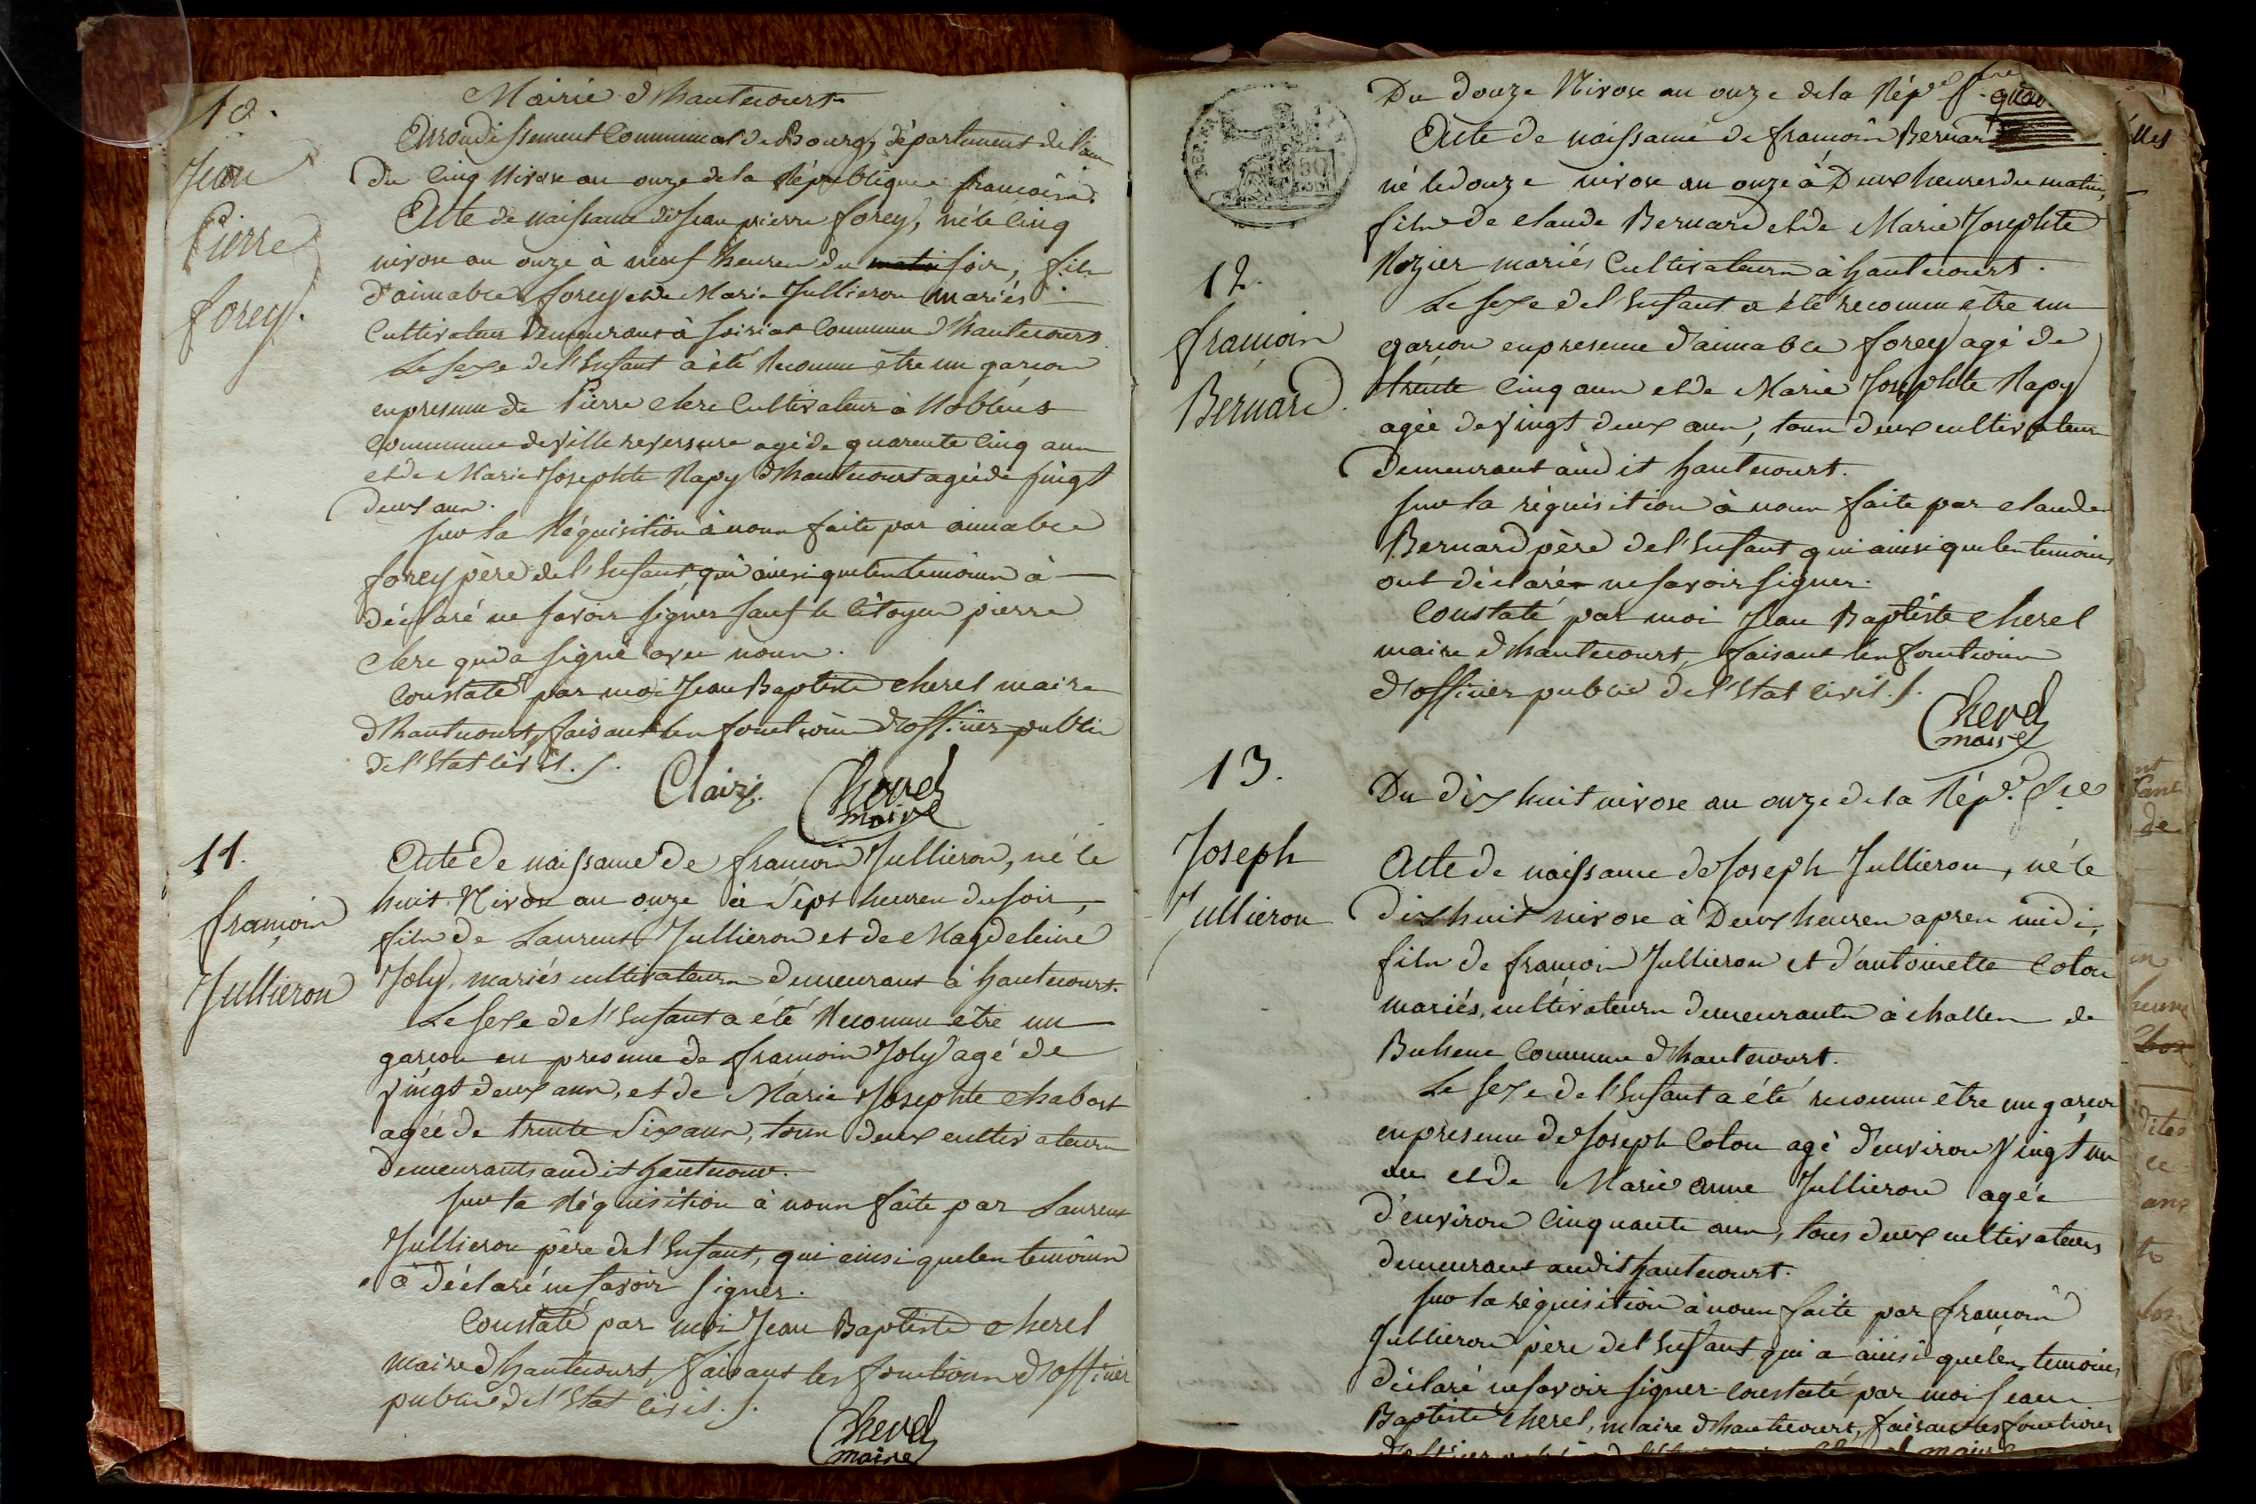 10.
Jean
Pierre
forey.
Mairie d'hautecourt
Arrondissement Communal de Bourg, département de l'ain
du Cinq Nivose an onze de la République françoise.
Acte de naissance de Jean pierre forey, né le Cinq
nivose an onze à neuf heures du matin soir, fils
d'aimable forey et de Marie Jullieron mariés
Cultivateur demeurant à soiriat Commune d'hautecourt
Le sexe de l'Enfant a été Reconnu être un garçon
en presence de Pierre Clerc Cultivateur à Noblens
Commune de Villereversure agé de quarente Cinq ans
et de Marie Josephte Rapy d'hautecourt agée de vingt
deux ans.
sur la Réquisition à nous faite par aimable
forey père de l'Enfant, qui ainsi que les temoins à
déclaré ne savoir signer sauf le Citoyen pierre
Clerc qui a signé avec nous.
Constaté par moi Jean Baptiste Cherel maire
d'hautecourt, faisant les fonctions d'officier public
de l'Etat Civil. /.
Clairc
Cherel
maire
11.
françois
Jullieron
Acte de naissance de françois Jullieron, né le
huit Nivose an onze à Sept heures du soir,
fils de Laurent Jullieron et de Magdeleine
Joly, mariés cultivateurs demeurant à hautecourt.
Le sexe de l'Enfant a été Reconnu etre un
garçon en presence de françois Joly agé de
vingt deux ans, et de Marie Josephte Chabort
agée de trente Six ans, tous deux cultivateurs
demeurants audit hautecourt.
sur la Réquisition à nous faite par Laurent
Jullieron père de l'Enfant, qui ainsi que les temoins
à déclaré ne savoir signer.
Constaté par moi Jean Baptiste Cherel
maire d'hautecourt, faisant les fonctions d'officier
public de l'Etat Civil. /.
Cherel
maire
12.
françois
Bernard.
Du douze Nivose an onze de la Rép.e f.
Acte de naissance de françois Bernard
né le douze nivose an onze à Deux heures du matin,
fils de claude Bernard et de Marie Josephte
Rozier mariés Cultivateurs à hautecourt.
Le sexe de l'Enfant a été reconnu être un
garçon en presence d'aimable forey agé de
trente Cinq ans et de Marie Josephte Rapy
agée de vingt deux ans, tous deux cultivateurs
demeurant audit hautecourt.
sur la réquisition à nous faite par claude
Bernard père de l'Enfant qui ainsi que les temoins
ont déclaré ne savoir signer.
Constaté par moi Jean Baptiste Cherel
maire d'hautecourt, faisant les fonctions
d'officier public de l'Etat Civil. /.
Cherel
maire
13.
Joseph
Jullieron
Du dix huit nivose an onze de la Rép.e f.se
Acte de naissance de Joseph Jullieron, né le
dix huit nivose à Deux heures apres midi,
fils de françois Jullieron et d'antoinette Coton
mariés, cultivateurs demeurants à challes de
Boheme Commune d'hautecourt.
Le sexe de l'Enfant a été reconnu être un garçon
en presence de Joseph Coton agé d'environ vingt un
an et de Marie anne Jullieron agée
d'environ Cinquante ans, tous deux cultivateurs
demeurant audit hautecourt.
sur la réquisition à nous faite par françois
Jullieron père de l'Enfant qui a ainsi que les temoins
déclaré ne savoir signer. Constaté par moi Jean
Baptiste Cherel, maire d'hautecourt, faisant les fonctions